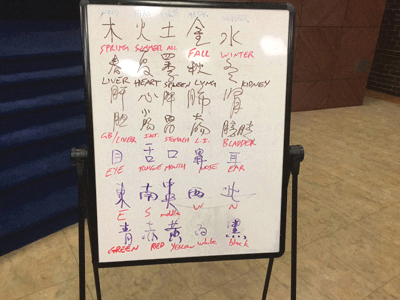 木 火 土 金 水
SPRING SUMMER ALL FALL WINTER
春 夏 秋 冬
LIVER HEART SPLEEN LUNG KIDNEY
肝 心 脾 肺 腎
胆 小腸 胃
GB/LIVER INT. STOMACH L.I. BLADDER
目 舌 口 鼻 耳
EYE TONGUE MOUTH NOSE EAR
東 南 西 北
E S middle W N
青 赤 黄 白 黒
GREEN RED Yellow white black